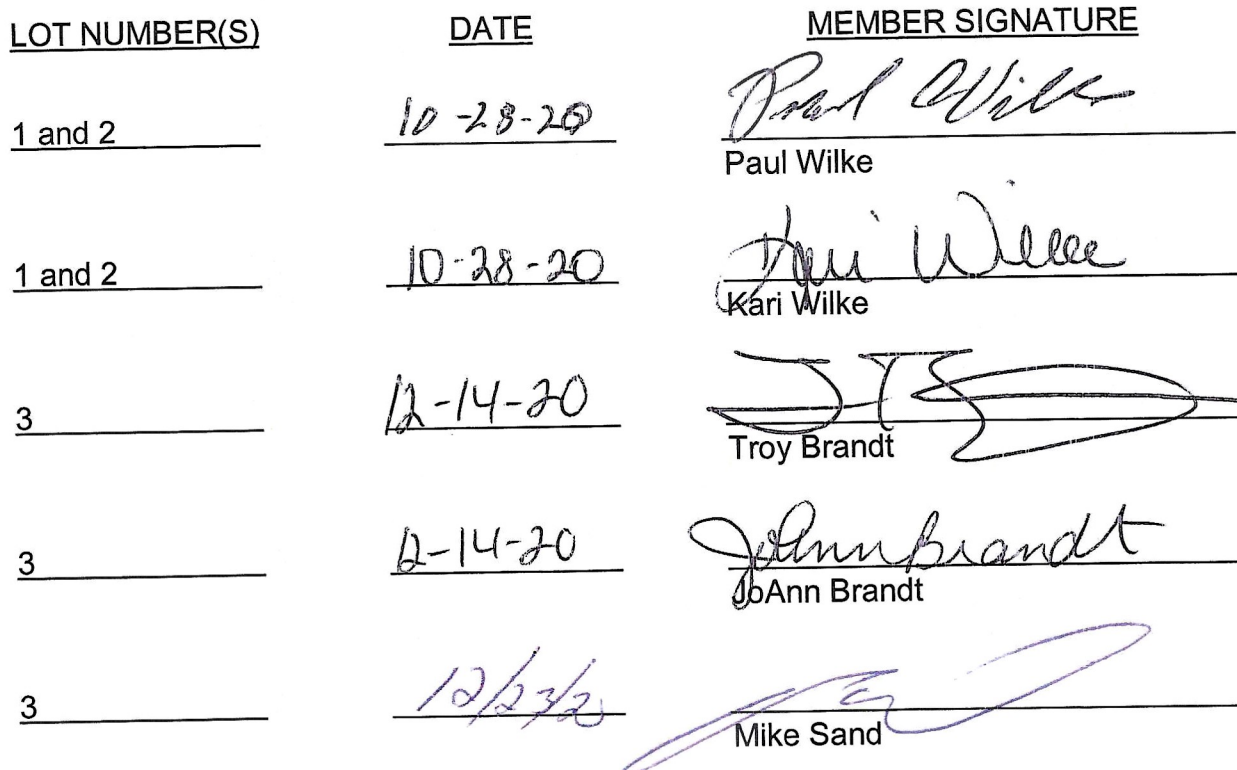 LOT NUMBER(S) DATE MEMBER SIGNATURE
1 and 2 10-28-20 Paul Wilke
Paul Wilke
1 and 2 10-28-20 Kari Wilke
Kari Wilke
3 12-14-20
Troy Brandt
3 12-14-20 JoAnn Brandt
JoAnn Brandt
3 12/23/20
Mike Sand